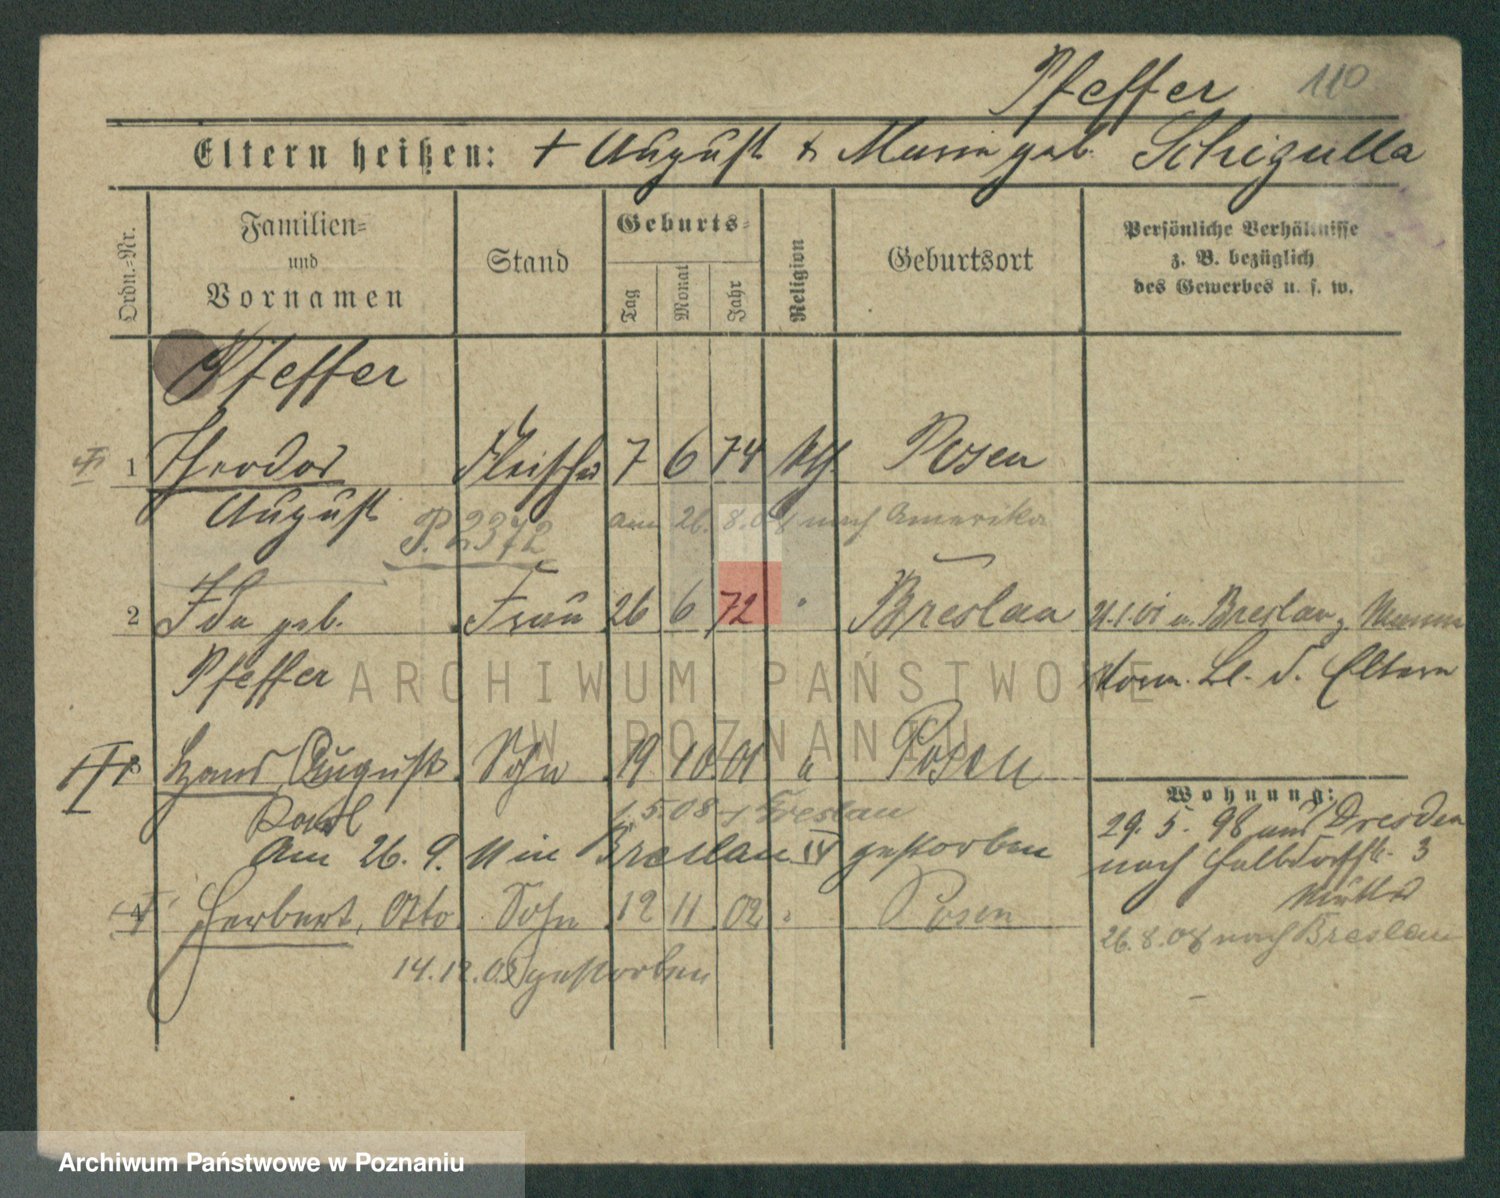 Pfeffer 110
Eltern heißen: + August & Maria geb. Schigulla
Ordn.=Nr.
Familien= und Vornamen
Stand
Geburts=
Tag Monat Jahr
Religion
Geburtsort
Persönliche Verhältnisse
z. B. bezüglich
des Gewerbes u. s. w.
Pfeffer
1 Theodor Fleischer 7 6 74 Posen
August
P. 2372 am 26. 8. 08 nach Amerika
2 Ida geb. Frau 26 6 72 " Breslau
Pfeffer
d. Eltern
3 Hans, August Sohn 19 10 01 " Posen
Paul
1. 5. 08 + Breslau
Am 26. 9. 11 in Breslau IV gestorben
4 Herbert, Otto Sohn 12 11 02 " Posen
14. 12. 02 gestorben
Wohnung:
29. 5. 98 aus Dresden
nach Halbdorfstr. 3
26. 8. 08 nach Breslau
ARCHIWUM PAŃSTWOWE
W POZNANIU
Archiwum Państwowe w Poznaniu